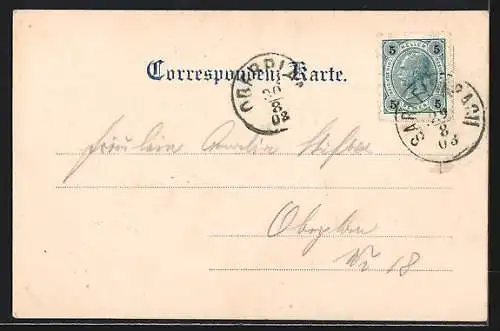 Correspondenz-Karte.
OBERPLAN
30
8
03
5 HELLER 5
5 5
29
8
03
Fräulein Amalie Stifter
Oberplan
Nr 18